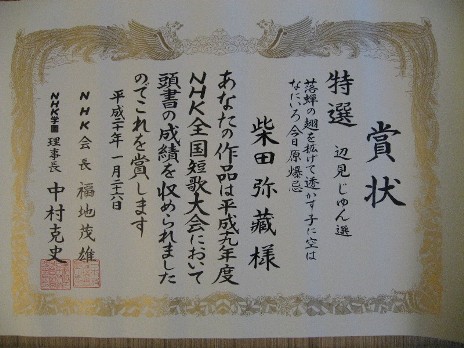 賞状
特選 辺見じゅん選
落蝉の翅を拡げて透かす子に空は
なにいろ今日原爆忌
柴田弥藏様
あなたの作品は平成十九年度
NHK全国短歌大会において
頭書の成績を収められました
のでこれを賞します
平成二十年一月二十六日
NHK会長 福地茂雄
NHK学園 理事長 中村克史